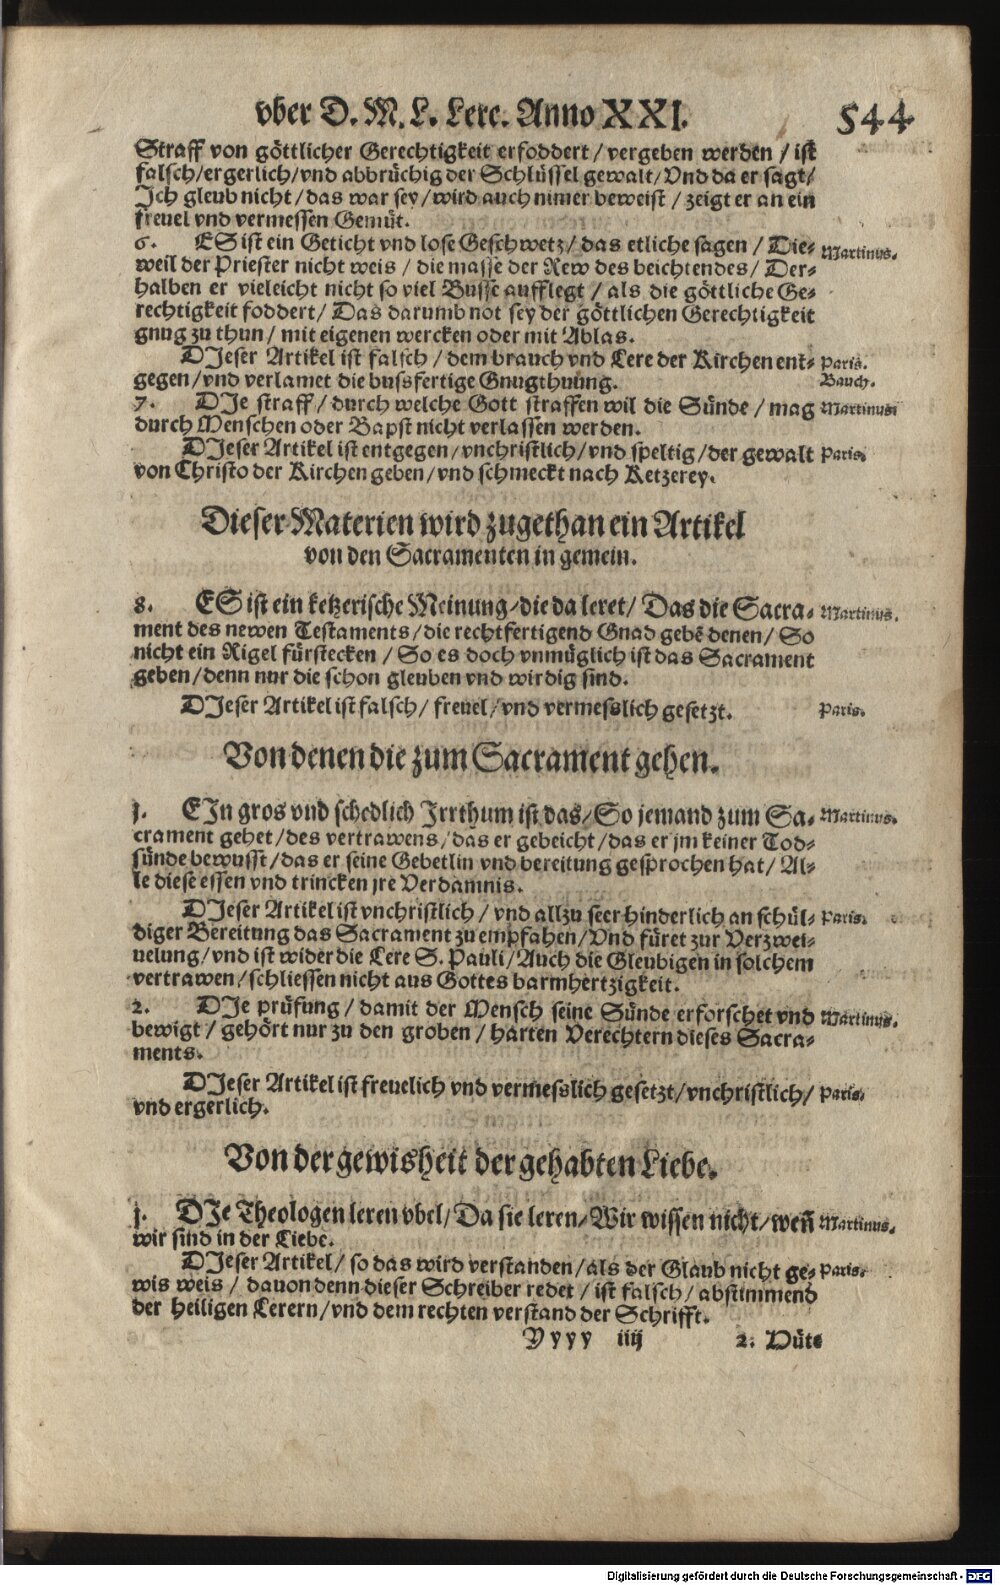 vber D. M. L. Lere. Anno XXI. 544
Straff von göttlicher Gerechtigkeit erfoddert / vergeben werden / ist
falsch/ergerlich/vnd abbrüchig der Schlüssel gewalt/Vnd da er sagt/
Ich gleub nicht / das war sey/wird auch nimer beweist / zeigt er an ein
freuel vnd vermessen Gemüt.
6. ES ist ein Geticht vnd lose Geschwetz / das etliche sagen / Die- Martinus.
weil der Priester nicht weis / die masse der Rew des beichtendes / Der-
halben er vieleicht nicht so viel Busse aufflegt / als die göttliche Ge-
rechtigkeit foddert / Das darumb not sey der göttlichen Gerechtigkeit
gnug zu thun / mit eigenen wercken oder mit Ablas.
DIeser Artikel ist falsch / dem brauch vnd Lere der Kirchen ent- Paris.
gegen/vnd verlamet die bussfertige Gnugthuung. Bauch.
7. DIe straff / durch welche Gott straffen wil die Sünde / mag Martinus
durch Menschen oder Bapst nicht verlassen werden.
DIeser Artikel ist entgegen/vnchristlich/vnd speltig/der gewalt Paris.
von Christo der Kirchen geben/vnd schmeckt nach Ketzerey.
Dieser Materien wird zugethan ein Artikel
von den Sacramenten in gemein.
8. ES ist ein ketzerische Meinung/die da leret/ Das die Sacra- Martinus.
ment des newen Testaments/die rechtfertigend Gnad gebē denen/ So
nicht ein Rigel fürstecken / So es doch vnmüglich ist das Sacrament
geben/denn nur die schon gleuben vnd wirdig sind.
DIeser Artikel ist falsch / freuel/vnd vermesslich gesetzt. Paris.
Von denen die zum Sacrament gehen.
j. EIn gros vnd schedlich Irrthum ist das/So jemand zum Sa- Martinus.
crament gehet/des vertrawens/das er gebeicht/das er jm keiner Tod-
sünde bewusst/das er seine Gebetlin vnd bereitung gesprochen hat/ Al-
le diese essen vnd trincken jre Verdamnis.
DIeser Artikel ist vnchristlich / vnd allzu seer hinderlich an schül- Paris.
diger Bereitung das Sacrament zu empfahen/Vnd füret zur Verzwei-
uelung/vnd ist wider die Lere S. Pauli/Auch die Gleubigen in solchem
vertrawen/schliessen nicht aus Gottes barmhertzigkeit.
2. DIe prüfung / damit der Mensch seine Sünde erforschet vnd Martinus.
bewigt / gehört nur zu den groben / harten Verechtern dieses Sacra-
ments.
DIeser Artikel ist freuelich vnd vermesslich gesetzt/vnchristlich/ Paris.
vnd ergerlich.
Von der gewisheit der gehabten Liebe.
j. DIe Theologen leren vbel/Da sie leren/Wir wissen nicht/weñ Martinus.
wir sind in der Liebe.
DIeser Artikel / so das wird verstanden/als der Glaub nicht ge- Paris.
wis weis / dauon denn dieser Schreiber redet / ist falsch / abstimmend
der heiligen Lerern/vnd dem rechten verstand der Schrifft.
Yyyy iiij 2. Düt-
Digitalisierung gefördert durch die Deutsche Forschungsgemeinschaft - DFG